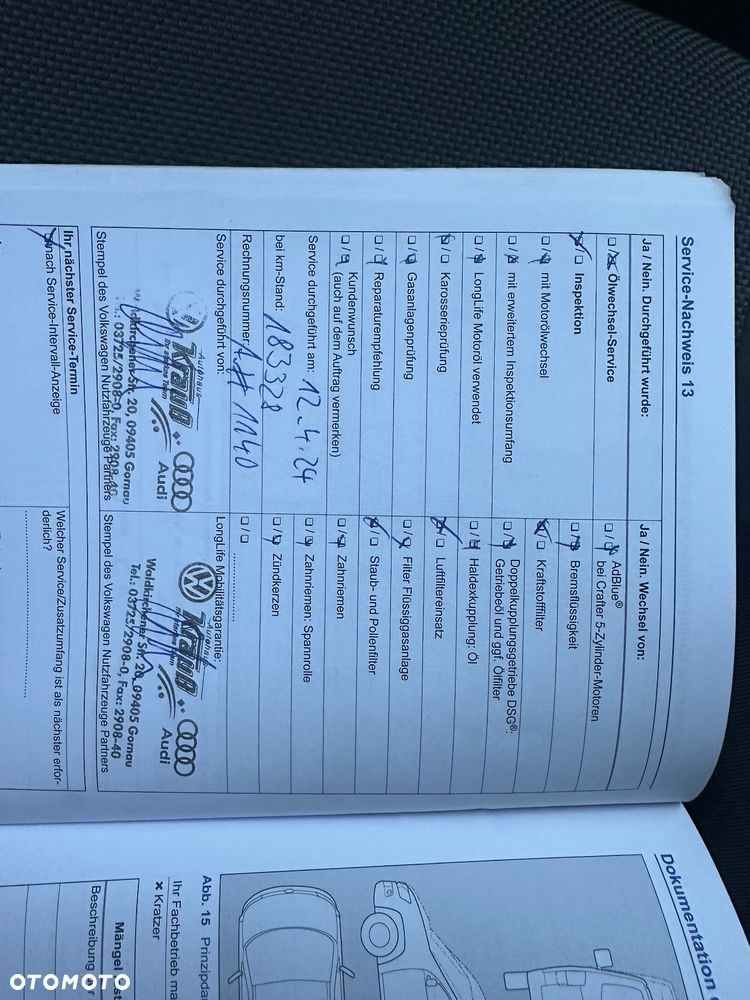 Service-Nachweis 13
Ja / Nein. Durchgeführt wurde:
☐ / ☒ Ölwechsel-Service
☒ / ☐ Inspektion
☐ / ☒ mit Motorölwechsel
☐ / ☒ mit erweitertem Inspektionsumfang
☐ / ☒ LongLife Motoröl verwendet
☒ / ☐ Karosserieprüfung
☐ / ☒ Gasanlagenprüfung
☐ / ☒ Reparaturempfehlung
☐ / ☒ Kundenwunsch
(auch auf dem Auftrag vermerken)
Service durchgeführt am: 12.4.24
bei km-Stand: 183328
Rechnungsnummer: 1140
Service durchgeführt von:
Autohaus
Krauß
Ihr starkes Team
Audi
Waldkirchener Str. 20, 09405 Gornau
Tel.: 03725/2908-0, Fax: 2908-40
Stempel des Volkswagen Nutzfahrzeuge Partners
Ja / Nein. Wechsel von:
☐ / ☒ AdBlue®
bei Crafter 5-Zylinder-Motoren
☐ / ☒ Bremsflüssigkeit
☒ / ☐ Kraftstofffilter
☐ / ☒ Doppelkupplungsgetriebe DSG®:
Getriebeöl und ggf. Ölfilter
☐ / ☒ Haldexkupplung: Öl
☒ / ☐ Luftfiltereinsatz
☐ / ☒ Filter Flüssiggasanlage
☒ / ☐ Staub- und Pollenfilter
☐ / ☒ Zahnriemen
☐ / ☒ Zahnriemen: Spannrolle
☐ / ☒ Zündkerzen
☐ / ☐ ....................
LongLife Mobilitätsgarantie:
Autohaus
Krauß
Ihr starkes Team
Audi
Waldkirchener Str. 20, 09405 Gornau
Tel.: 03725/2908-0, Fax: 2908-40
Stempel des Volkswagen Nutzfahrzeuge Partners
Ihr nächster Service-Termin
☒ nach Service-Intervall-Anzeige
Welcher Service/Zusatzumfang ist als nächster erfor-
derlich?
Dokumentation
Abb. 15 Prinzipda
Ihr Fachbetrieb ma
× Kratzer
Mängel
Beschreibung
OTOMOTO